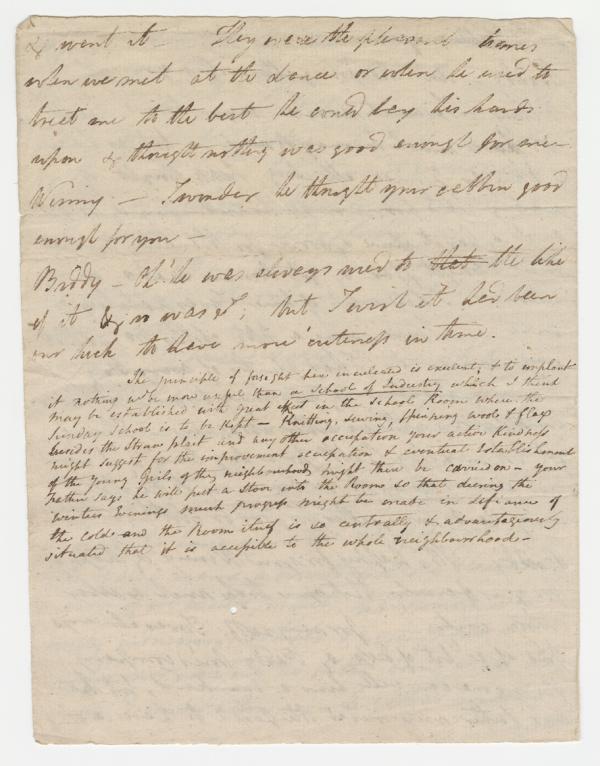 & went it – They were the pleasant times
when we met at the dance or when he used to
treat me to the best he could lay his hands
upon & thought nothing was good enough for me.
Winny – I wonder he thought your cabbin good
enough for you –
Biddy – Oh! he was always used to that the like
of it & so was I; but I wish it had been
our luck to have more 'cuteness in time.
The principle of foresight here inculcated is excellent, & to implant
it nothing wd be more useful than a School of Industry which I think
may be established with great effect in the School Room where the
Sunday School is to be kept – Knitting, sewing, spinning wool & flax
besides the Straw plait and any other occupation your active Kindness
might suggest for the improvement occupation & eventual Establishment
of the Young Girls of the neighbourhood might then be carried on – your
Father says he will put a Stove into the Room so that during the
Winter Evenings much progress might be made in defiance of
the cold – and the Room itself is so centrally & advantageously
situated that it is accessible to the whole neighbourhood –